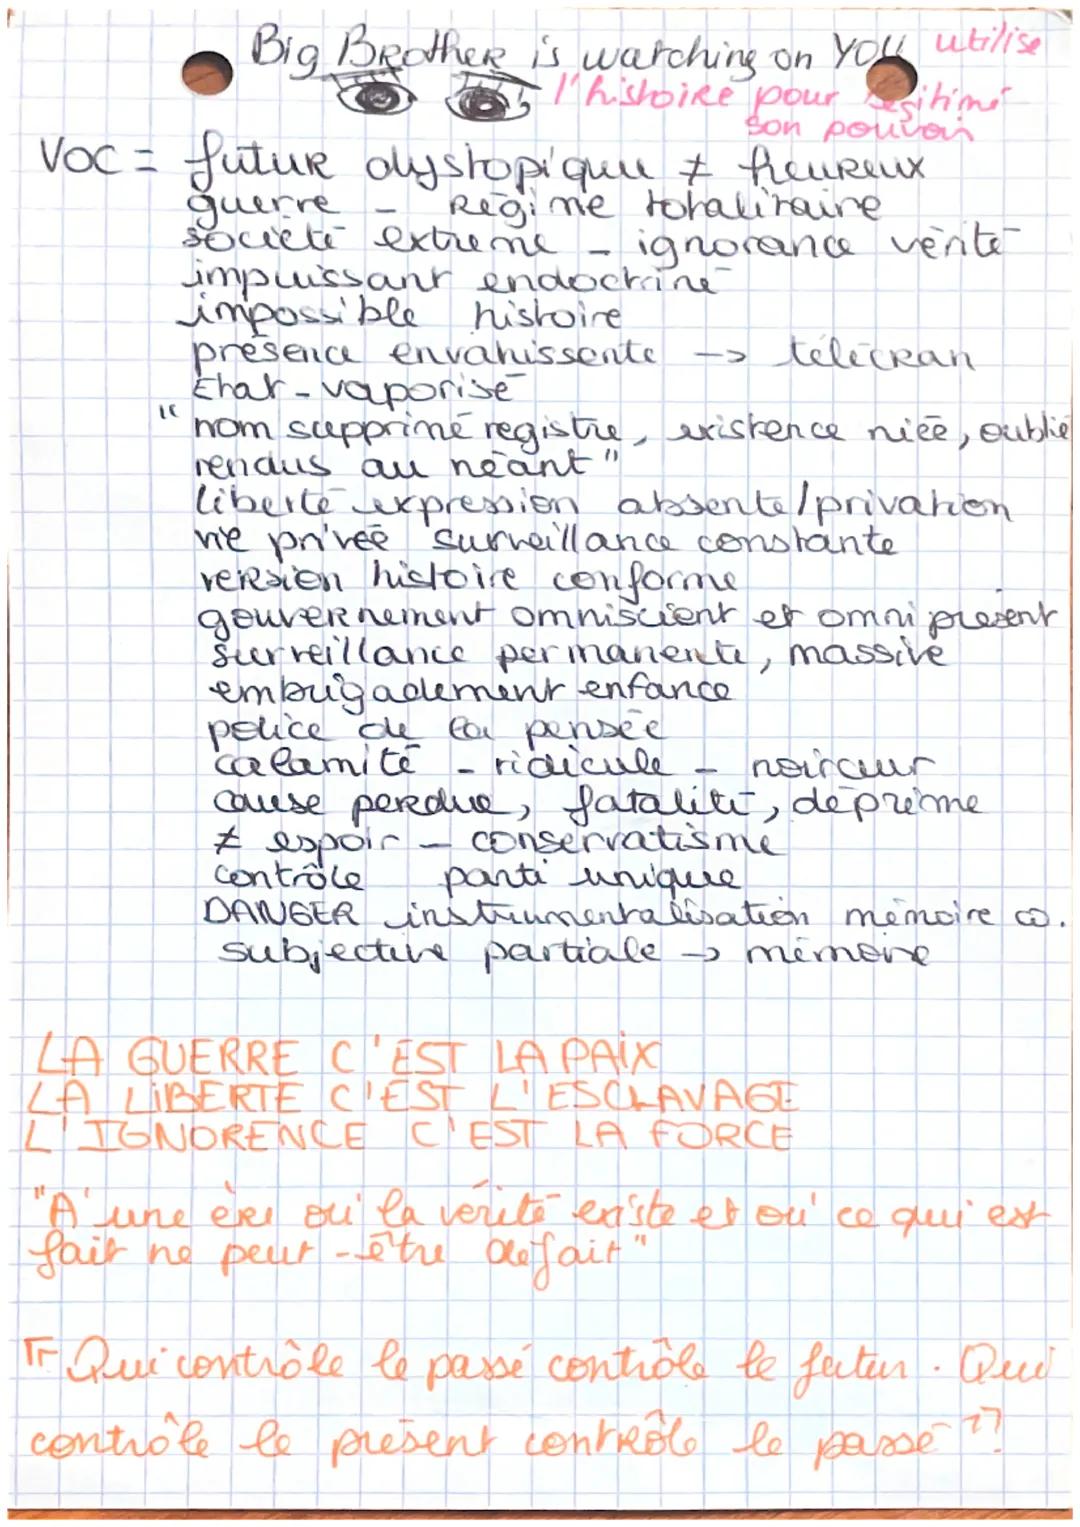 Big Brother is watching on YOU utilise
l'histoire pour légitimé
son pouvoir
VOC = futur dystopique ≠ heureux
guerre - Régime totalitaire
société extreme - ignorance vérité
impuissant endoctriné
impossible histoire
présence envahissente -> télécran
Etat - vaporisé
"nom supprimé registre, existence niée, oublié
rendus au néant"
liberté expression absente/privation
vie privée surveillance constante
version histoire conforme
gouvernement omniscient et omniprésent
surveillance permanente, massive
embrigadement enfance
police de la pensée
calamité - ridicule - noirceur
cause perdue, fatalité, déprime
≠ espoir - conservatisme
contrôle parti unique
DANGER instrumentalisation mémoire co.
subjective partiale -> mémoire
LA GUERRE C'EST LA PAIX
LA LIBERTE C'EST L'ESCLAVAGE
L'IGNORENCE C'EST LA FORCE
"A une ère où la vérité existe et où ce qui est
fait ne peut-être défait"
"Qui contrôle le passé contrôle le futur. Qui
contrôle le présent contrôle le passé"